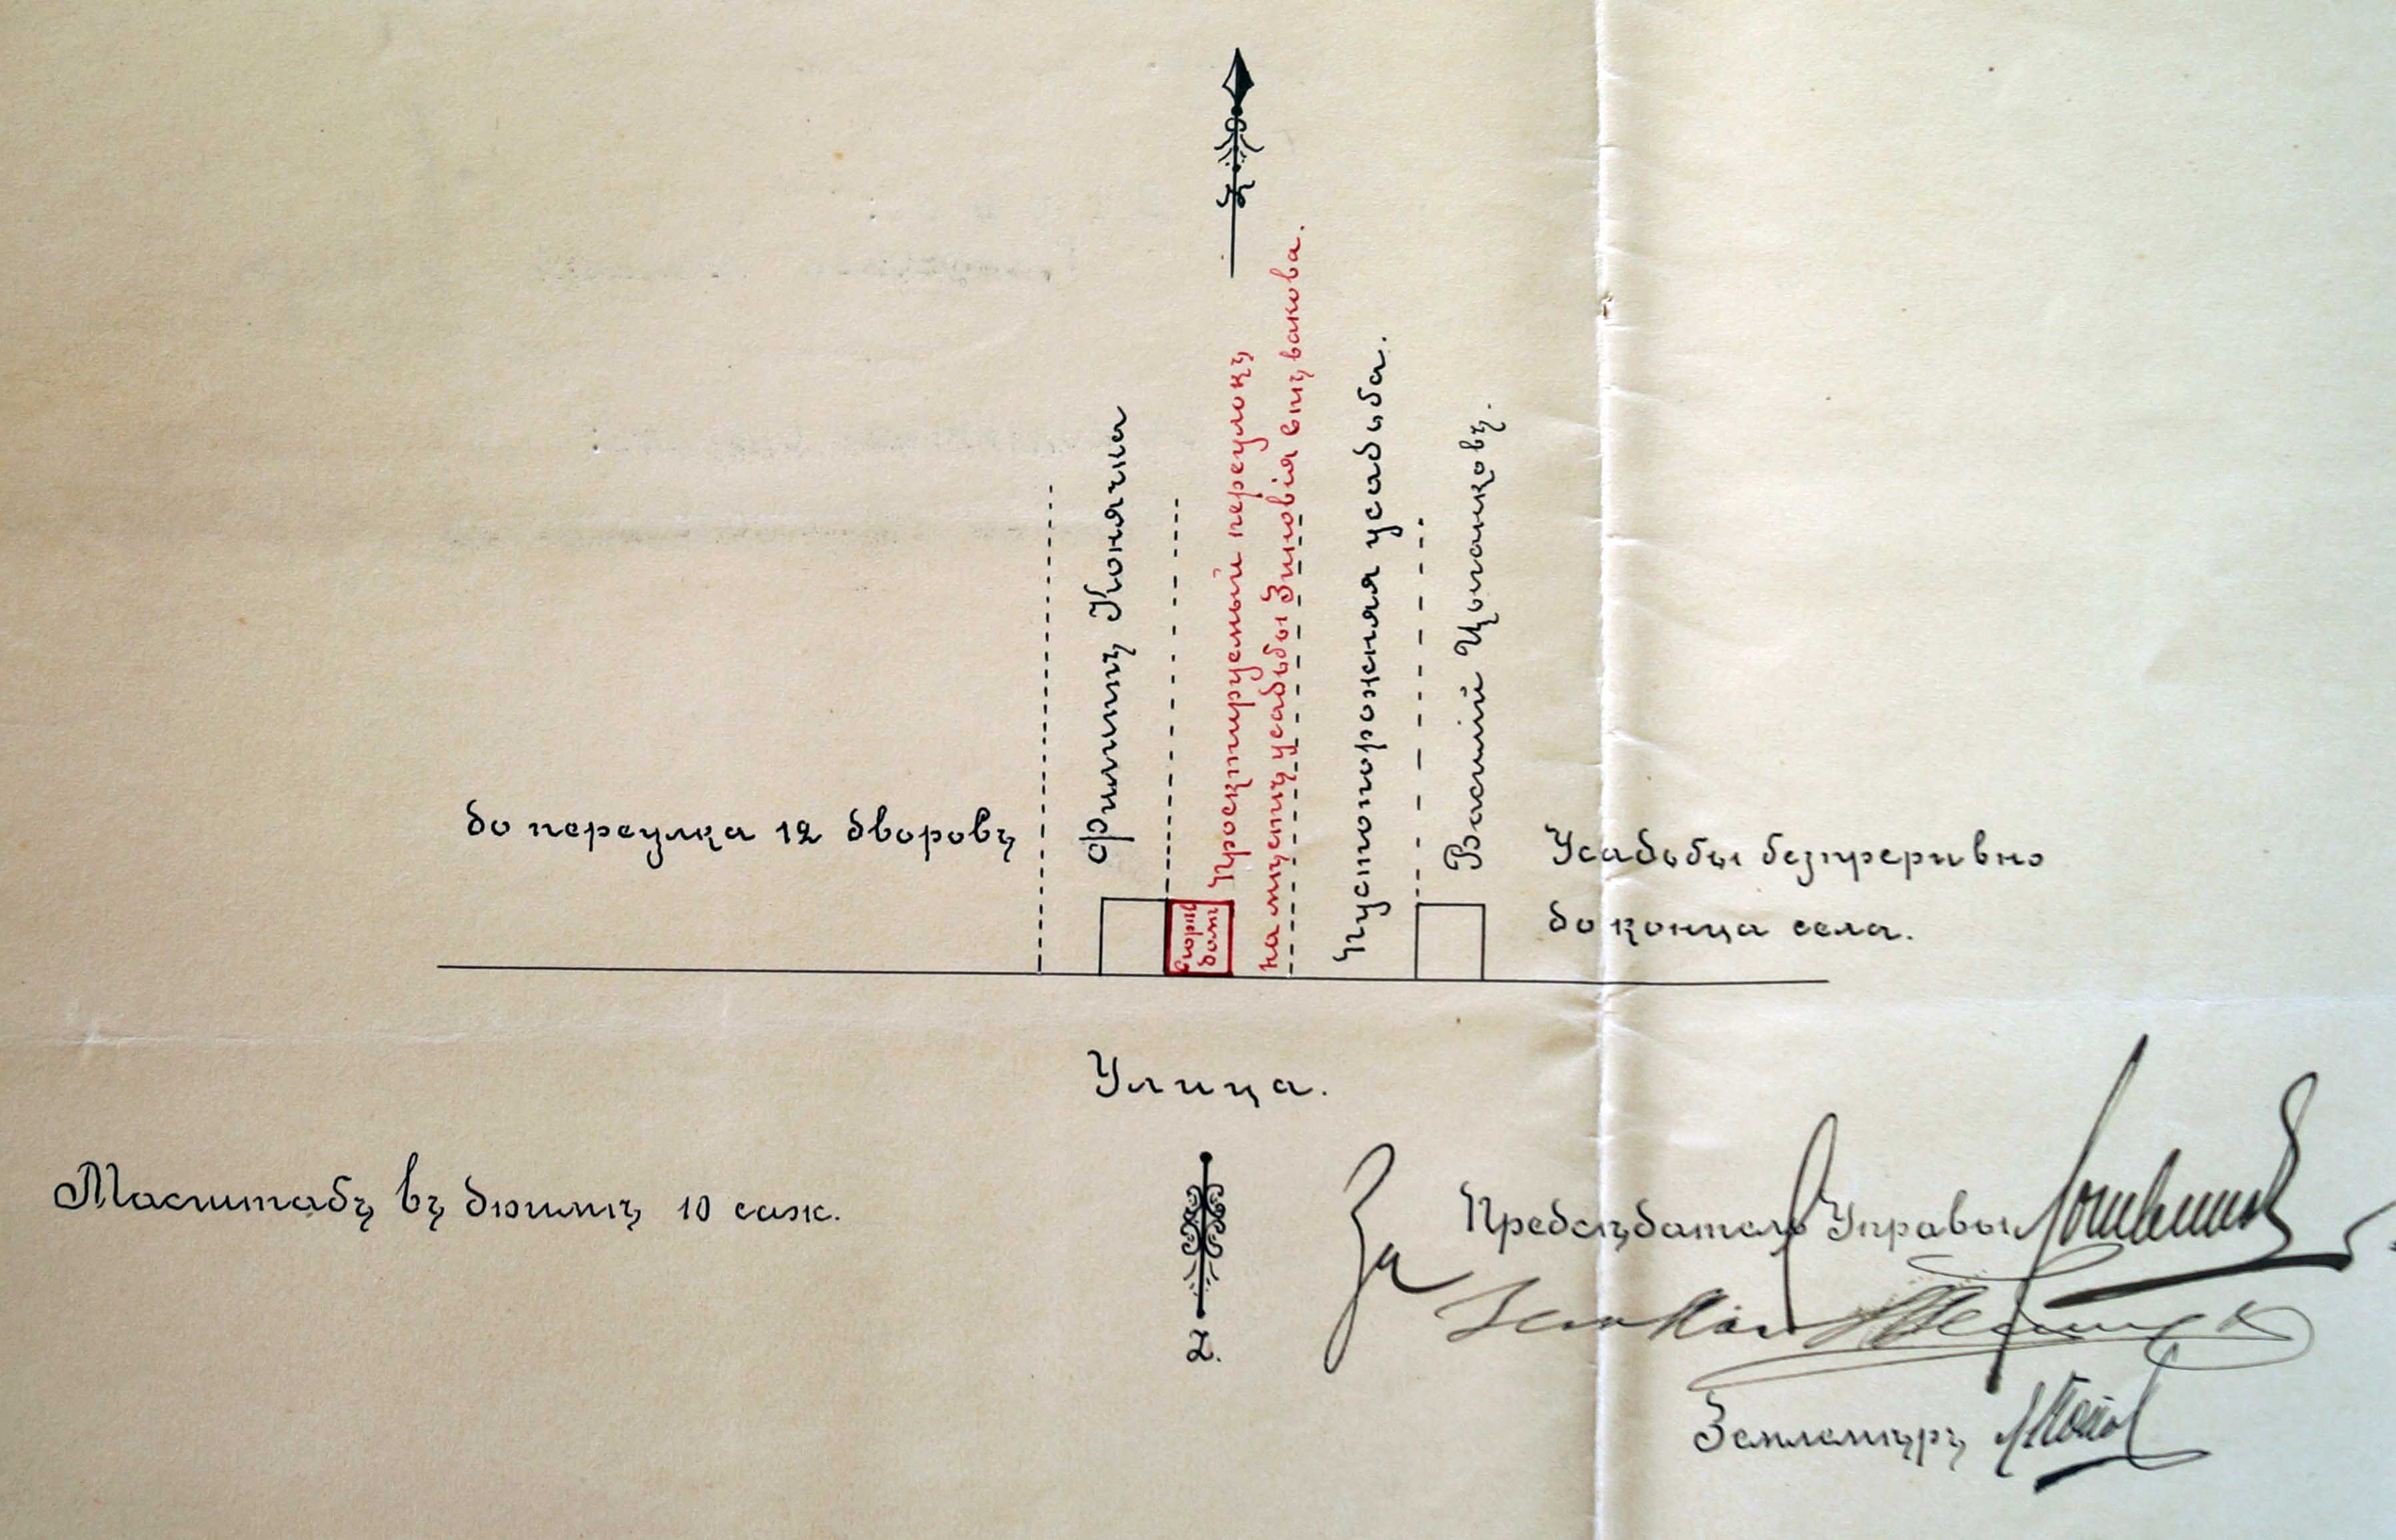 до переулка 12 дворовъ
Филиппъ Конячка
горѣл.
домъ
Проектируемый переулокъ
на мѣстѣ усадьбы Зиновія
Пустопорожняя усадьба.
Василій Цыганковъ.
Усадьбы безпреривно
до конца села.
Улица.
Масштабъ въ дюймѣ 10 саж.
За Предсѣдатель Управы
Землемѣръ